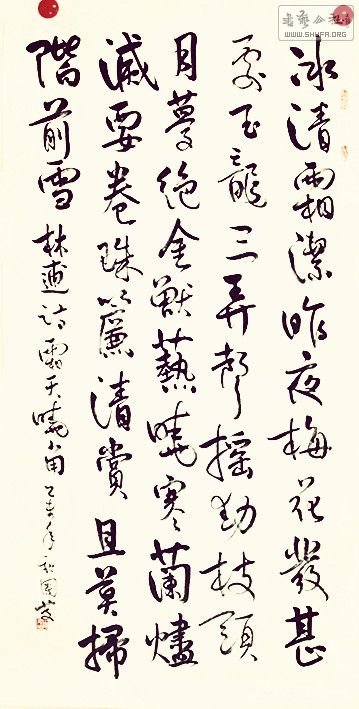 冰清霜潔昨夜梅花發甚
處玉龍三弄聲搖動枝頭
月夢絕金獸爇曉寒蘭燼
滅要卷珠簾清賞且莫掃
階前雪 林逋詩霜天曉角 乙未年
WWW.SHYFA.ORG